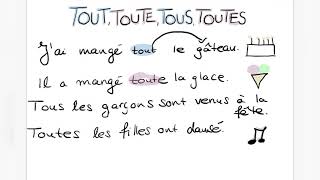 TOUT, TOUTE, TOUS, TOUTES
J'ai mangé tout le gâteau.
Il a mangé toute la glace.
Tous les garçons sont venus à la fête.
Toutes les filles ont dansé.